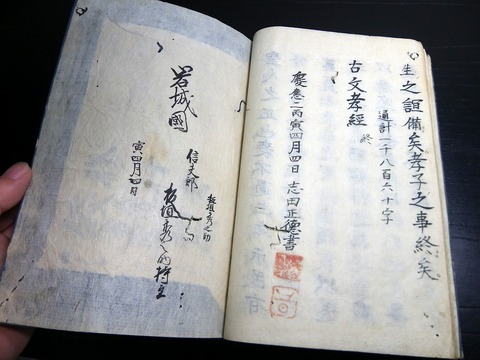 生之誼備矣孝子之事終矣
通計一千八百六十字
古文孝經 終
慶應二丙寅四月四日 志田正德書
岩城國
信夫郡
板垣秀之助
板垣秀 持主
寅四月四日